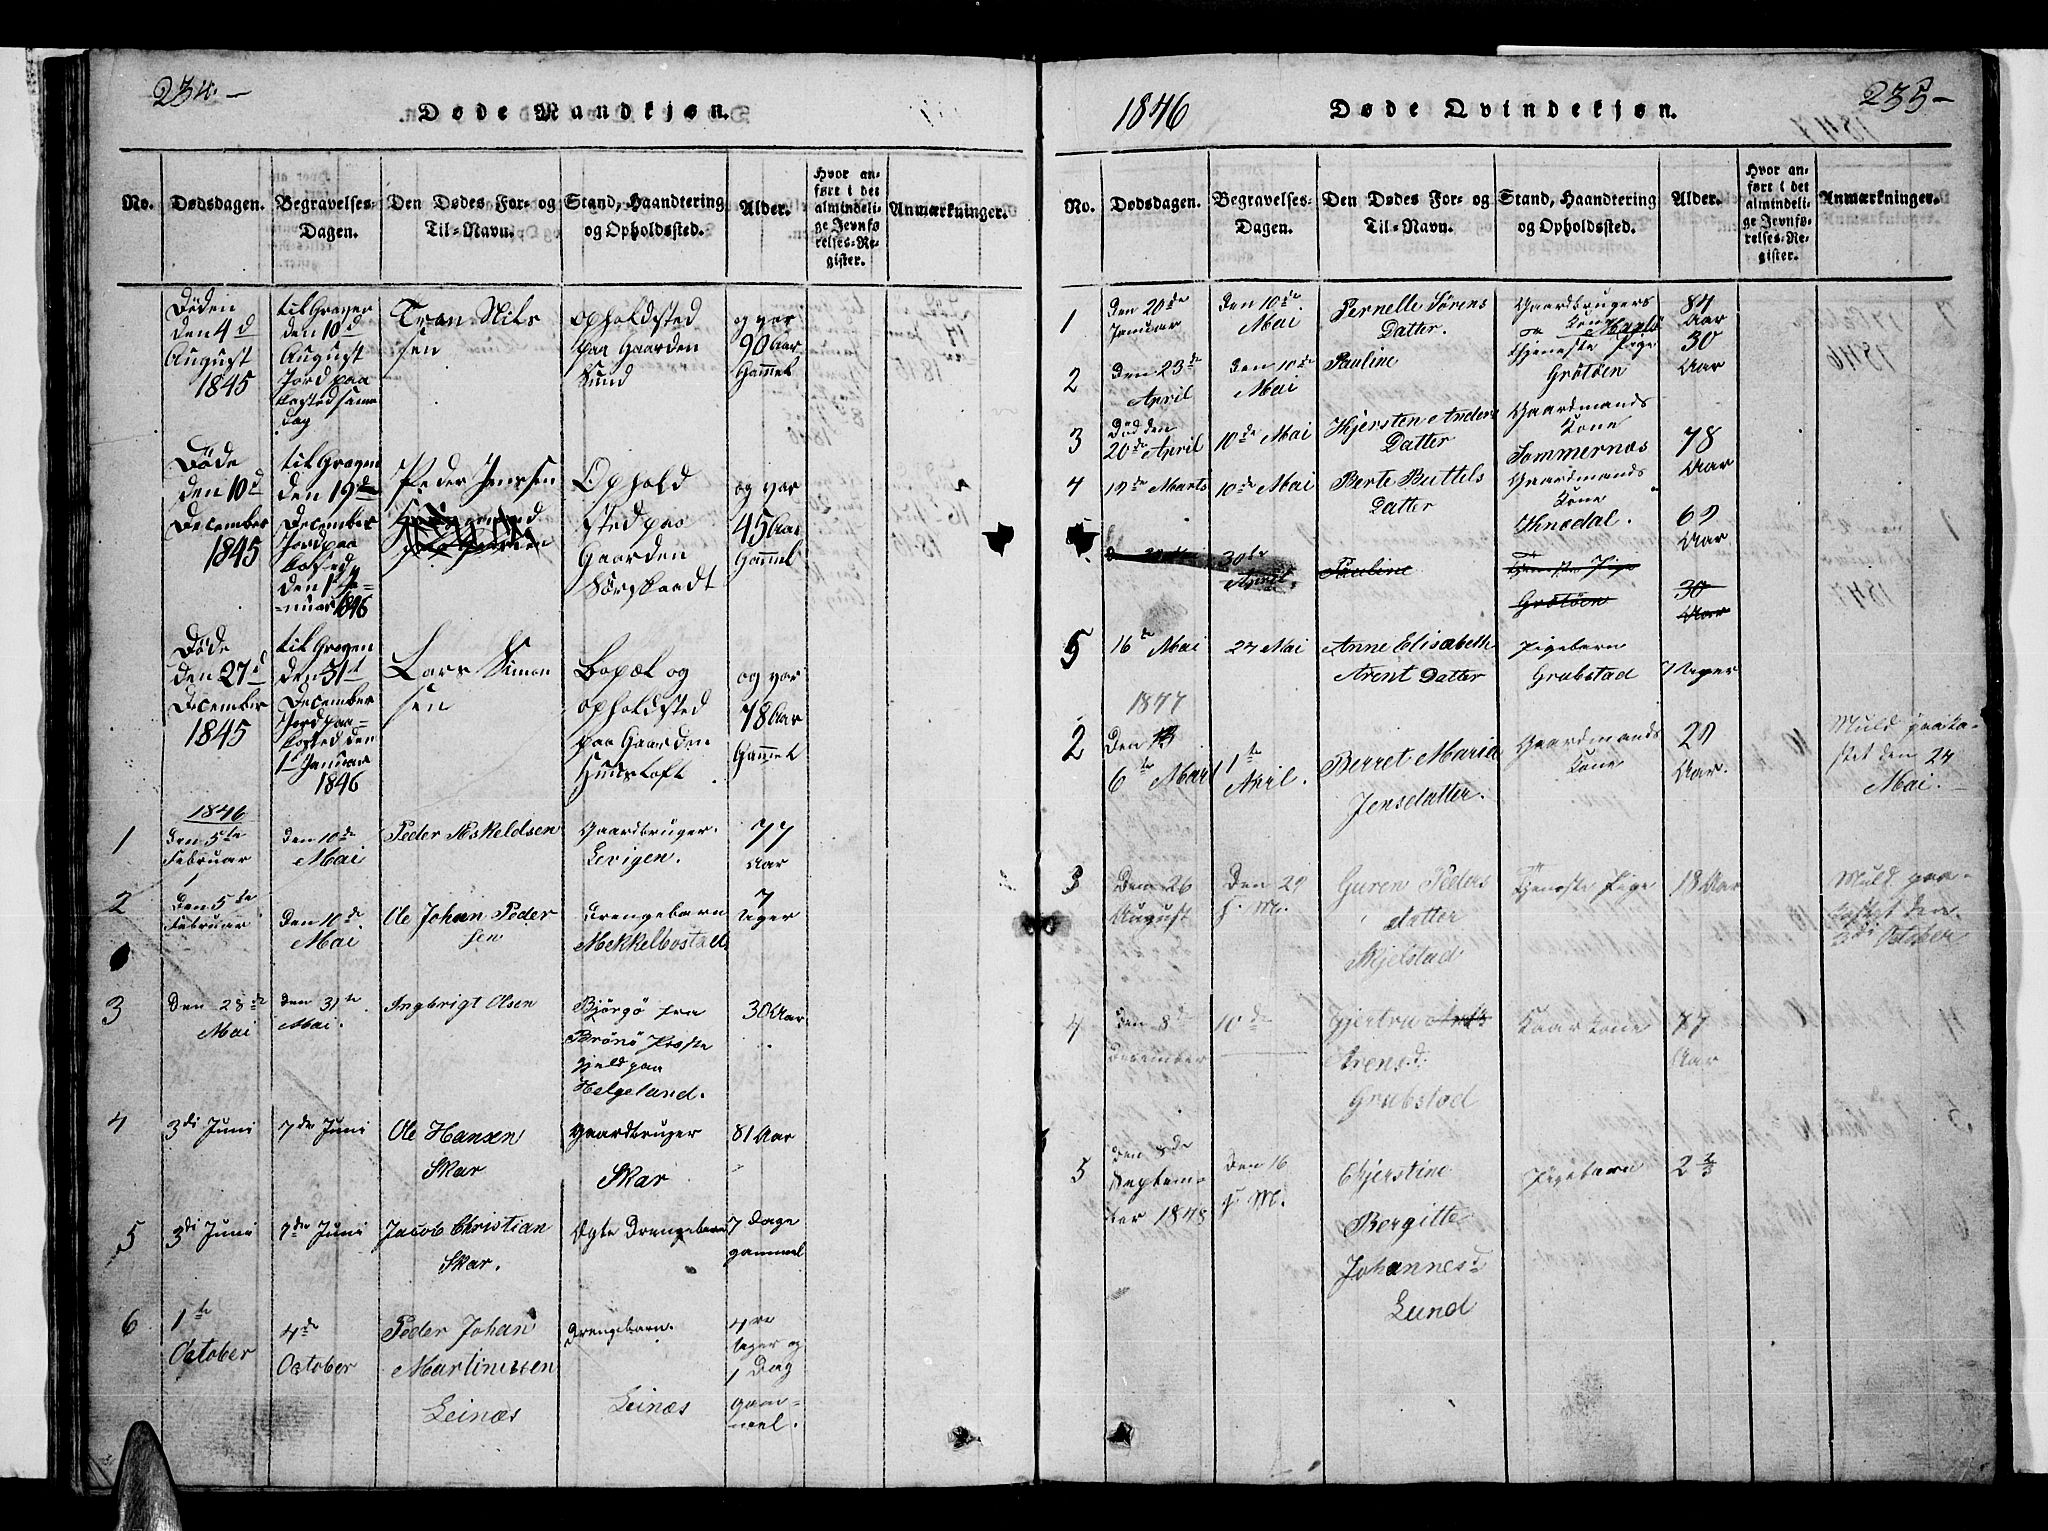 234.-
Døde Mandkjøn.
No.
Dødsdagen.
Begravelses-
Dagen.
Den Dødes For- og
Til-Navn.
Stand, Haandtering
og Opholdssted.
Alder.
Hvor an-
ført i det
almindeli-
ge Jevnfø-
relses-Re-
gister.
Anmærkninger.
Døden
den 4d
August
1845
til Graven
den 10d
August
Jord paa
kasted samme
dag
Tron Nils
sen
opholdsted
paa Gaarden
Sund
og var
90 Aar
Gammel
Døde
den 10d
December
1845
til Graven
den 19d
December
Jord paa
kasted
den 1 Ja-
nuar 1846
Peder Jenssen
Ophold
sted paa
Gaarden
og var
45 Aar
Gammel
Døde
den 27d
December
1845
til Graven
den 31t
December
Jord paa=
kasted den
1t Januar
1846
Lars Simon
sen
Bopæl og
opholdsted
paa Gaarden
og var
78 Aar
Gammel
1846
1
den 5te
Februar
den 10de
Mai
Peder Askeldsen
Gaardbruger.
Levigen.
77
Aar
2
den 5te
Februar
den 10de
Mai
Ole Johan Peder
sen
Drengebarn
Mekkelbostad
7
Uger
3
Den 28de
Mai
den 31te
Mai.
Ingbrigt Olsen
Bjørgø fra
Brønø Præste
gjeld paa
Helgeland.
30 Aar
4
3di Juni
7de Juni
Ole Hansen
Skar
Gaardbruger
Skar
81 Aar
5
3di Juni
7de Juni
Jacob Christian
Skar.
Ægte Drengebarn
7 Dage
gammel
6
1te
October
4de
October
Peder Johan
Martinussen
Leinæs
Drengebarn.
Leinæs
4re
Uger og
1 Dag
gam=
mel.
1846
Døde Qvindekjøn.
235-
No.
Dødsdagen.
Begravelses-
Dagen.
Den Dødes For- og
Til-Navn.
Stand, Haandtering
og Opholdssted.
Alder.
Hvor an-
ført i det
almindeli-
ge Jevnfø-
relses-Re-
gister.
Anmærkninger.
1
Den 20de
Januar
Den 10de
Mai
Pernelle Sørens
Datter.
Gaardbrugers
Kone
84
Aar
2
Den 23de
April
Den 10de
Mai
Pauline
Tjeneste Pige
Grøtøen
30
Aar
3
Død den
20de April
10de Mai
Kjersten Anders
Datter
Gaardmands
Kone
Sommernæs
78
Aar
4
19de Marts
10de Mai
Berte Buttels
Datter
Gaardmands
Kone
69
Aar
30te
April.
Pauline
Tjeneste Pige
Grøtøen
30
Aar
5
16de Mai
27 Mai
Anne Elisabeth
Arent Datter
Pigebarn
Grubstad
Uger
1847
2
Den
6te Mart
1te
April.
Berret Maria
Jensdatter.
Gaardmands
Kone
29
Aar.
Muld paaka-
stet den 24
Mai.
3
Den 26
August
Den 29
s. M.
Guren Peders
datter
Mjelstad
Tjeneste Pige
18 Aar
Muld paa-
kastet den
3di October
4
Den 8de
December
10de
Gjertru
Arensd.
Grubstad
Kaarkone
77
Aar
5
Den 8de
Septem-
ber 1848
Den 16
s. M.
Kjerstine
Bergitte
Johannesd
Lund
Pigebarn
2 2/3